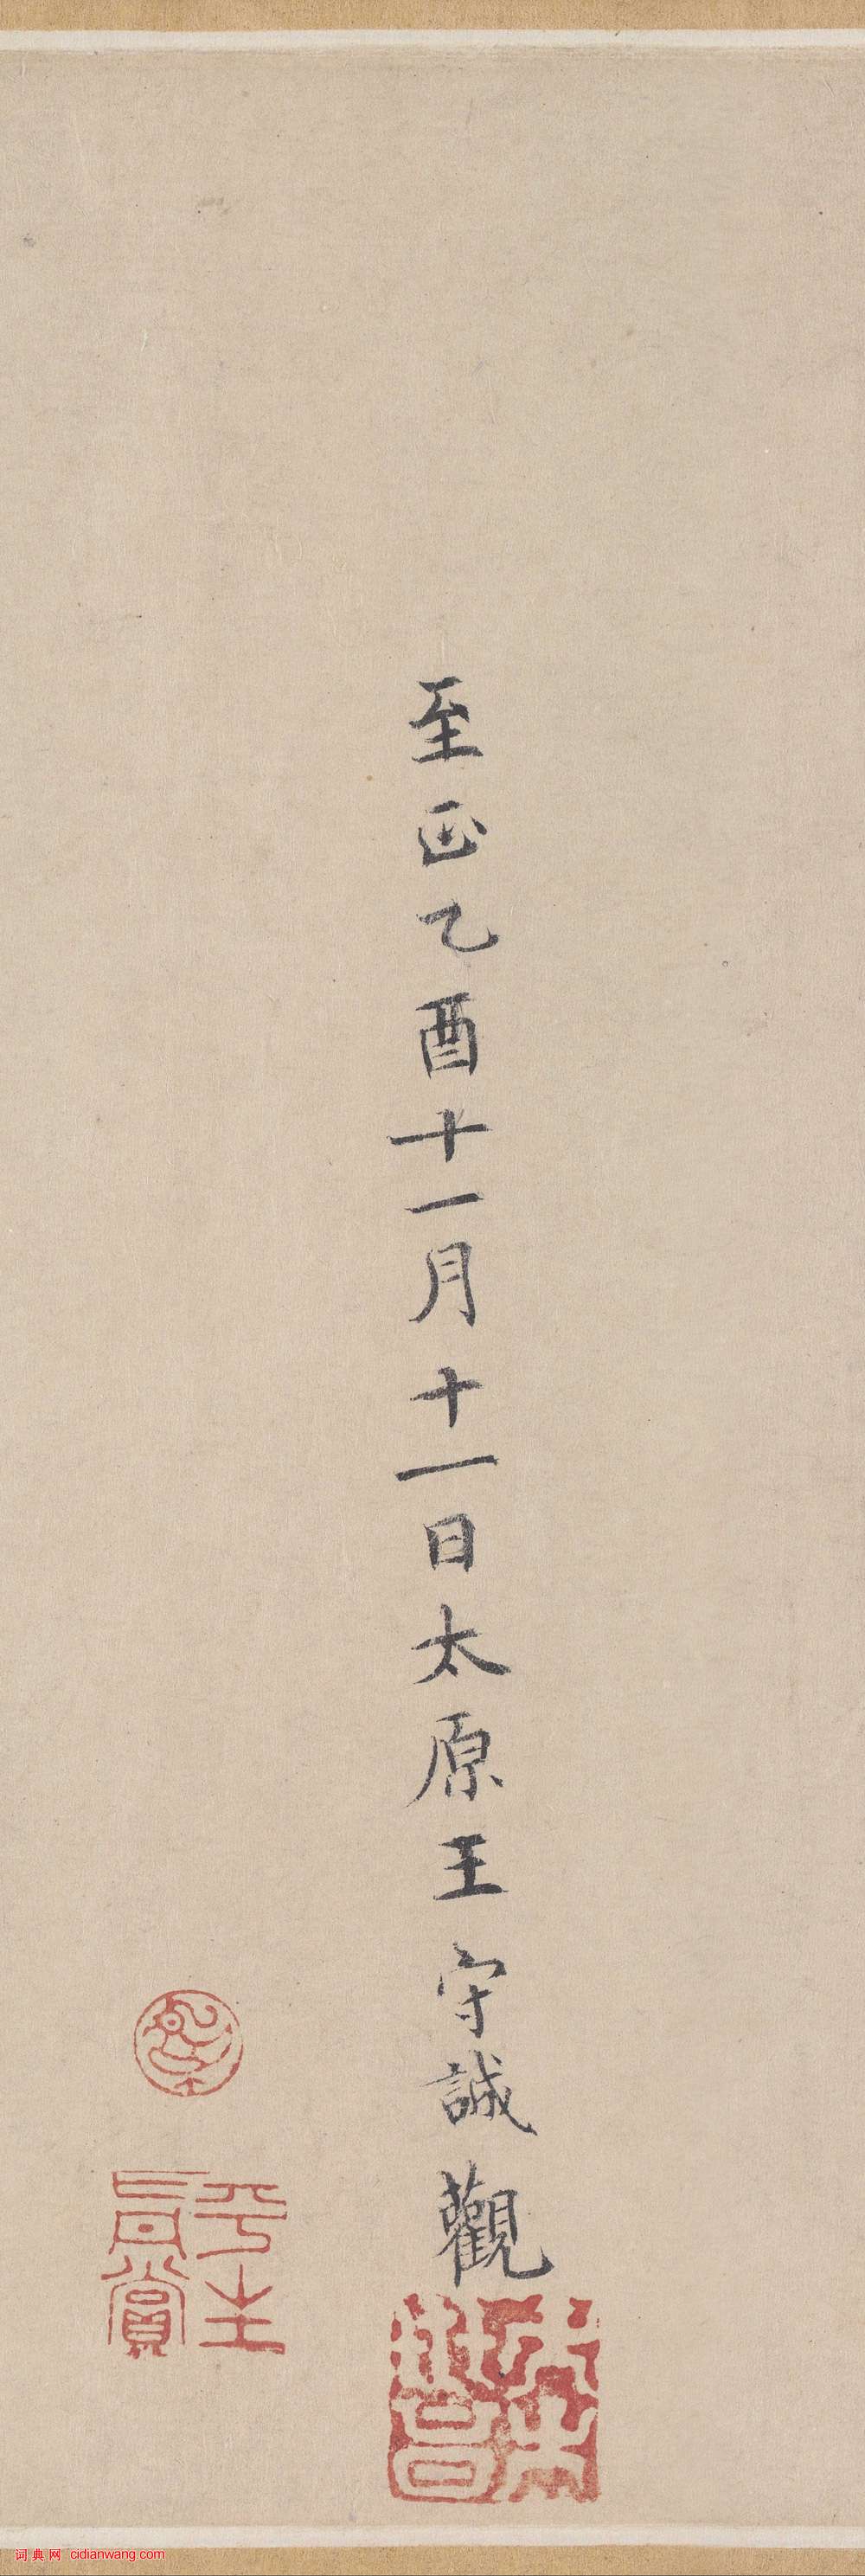 至正乙酉十一月十一日太原王守誠觀
平生
真賞
词典网 cidianwang.com